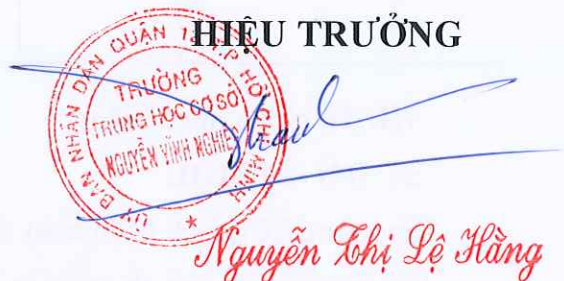 HIỆU TRƯỞNG
ỦY BAN NHÂN DÂN QUẬN 12 T.P HỒ CHÍ MINH
TRƯỜNG
TRUNG HỌC CƠ SỞ
NGUYỄN VĨNH NGHIỆP
Nguyễn Thị Lệ Hằng